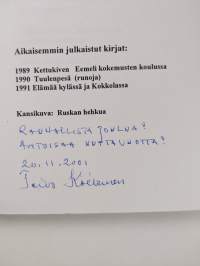 Aikaisemmin julkaistut kirjat:
1989 Kettukiven Eemeli kokemusten koulussa
1990 Tuulenpesä (runoja)
1991 Elämää kylässä ja Kokkolassa
Kansikuva: Ruskan hehkua
RAUHALLISTA JOULUA!
ANTOISAA UUTTAVUOTTA!
20.11.2001